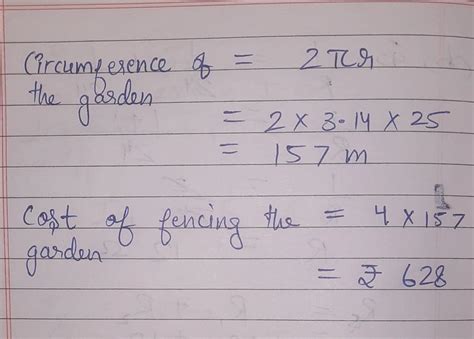 Circumference of = 2πr
the garden
= 2 × 3.14 × 25
= 157 m
Cost of fencing the = 4 × 157
garden
= ₹ 628